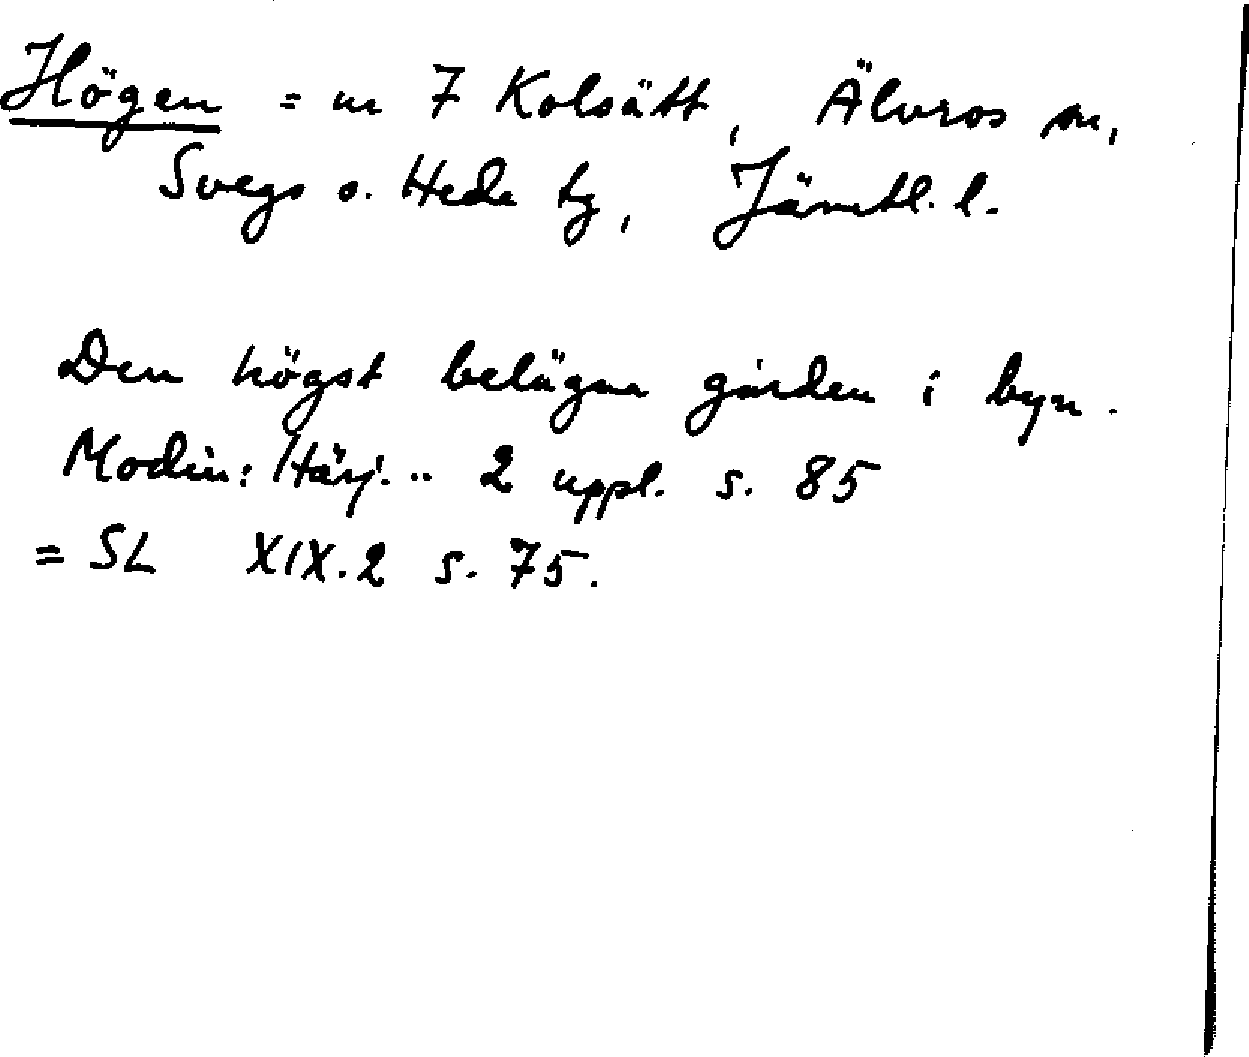 Högen = nr 7 Kolsätt, Älvros sn,
Svegs o. Hede tg, Jämtl. l.
Den högst belägna gården i byn.
Modin: Härj. .. 2 uppl. s. 85
= SL XIX.2 s. 75.